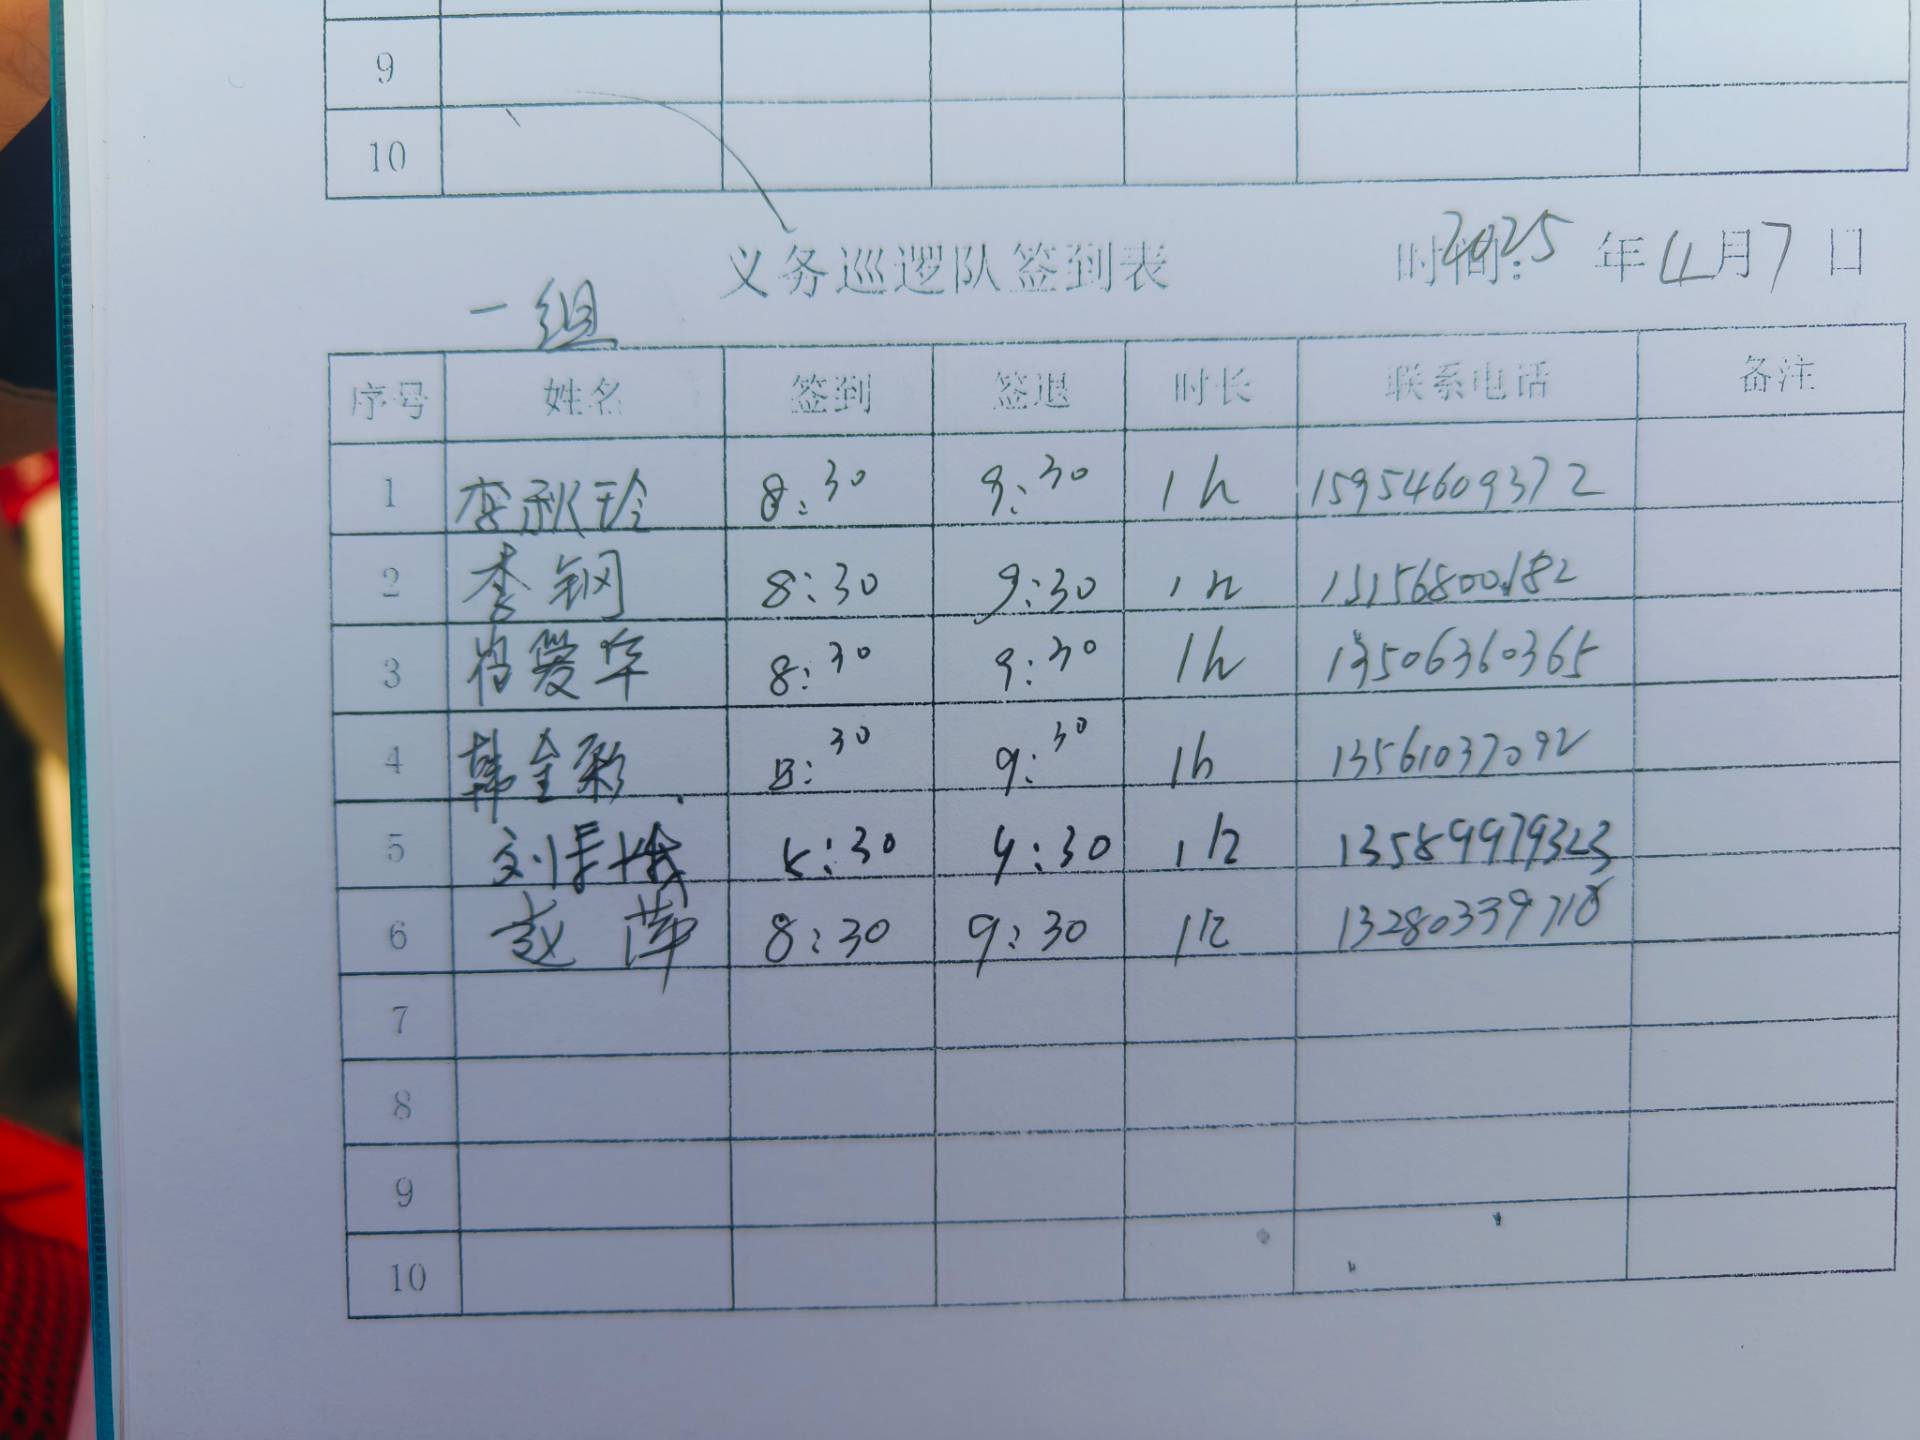 9
10
义务巡逻队签到表 时间: 2025 年 4 月 7 日
一组
序号 姓名 签到 签退 时长 联系电话 备注
1 李秋玲 8:30 9:30 1h 15954609372
2 李钢 8:30 9:30 1h 13156800182
3 肖爱华 8:30 9:30 1h 13506360365
4 韩金彩 8:30 9:30 1h 13561037092
5 刘 8:30 9:30 1h 13589979323
6 赵萍 8:30 9:30 1h
7
8
9
10